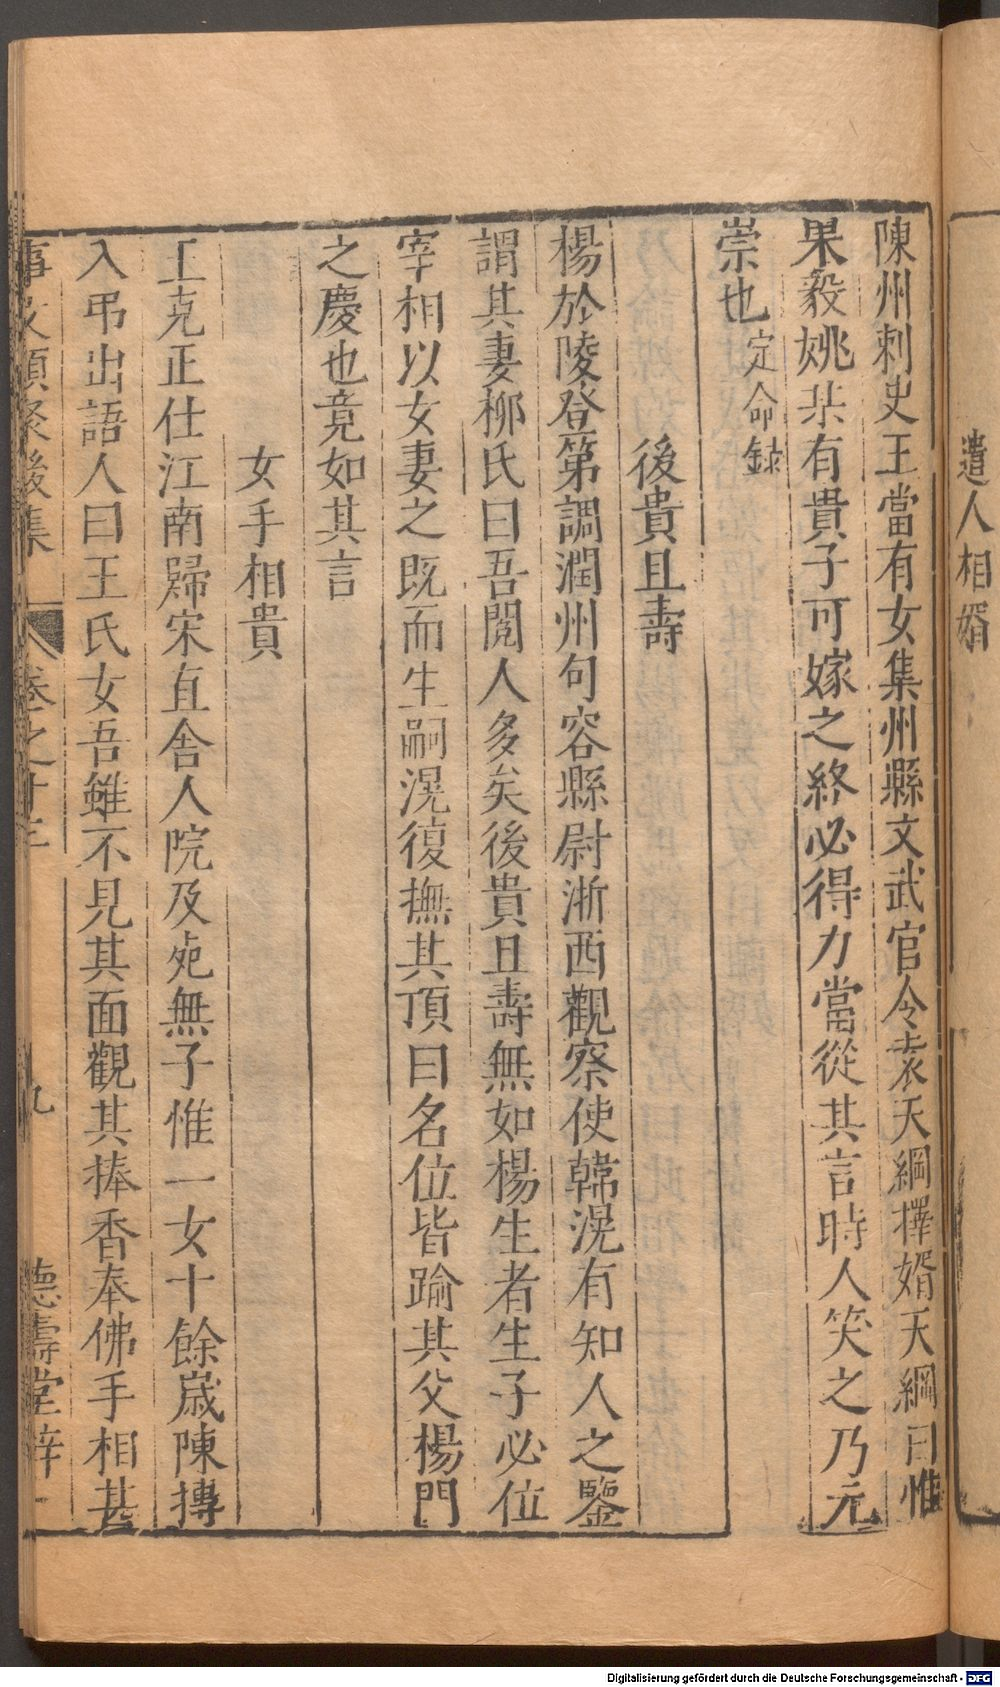 遣人相婿
陳州刺史王當有女集州縣文武官令袁天綱擇婿天綱曰惟
果毅姚某有貴子可嫁之終必得力當從其言時人笑之乃元
崇也定命録
後貴且壽
楊於陵登第調潤州句容縣尉浙西觀察使韓滉有知人之鑒
謂其妻柳氏曰吾閲人多矣後貴且壽無如楊生者生子必位
宰相以女妻之既而生嗣滉復撫其頂曰名位皆踰其父楊門
之慶也竟如其言
女手相貴
王克正仕江南歸宋直舍人院及死無子惟一女十餘歳陳摶
入弔出語人曰王氏女吾雖不見其面觀其捧香奉佛手相甚
事文類聚後集 卷之十三 九 德壽堂梓
Digitalisierung gefördert durch die Deutsche Forschungsgemeinschaft - DFG